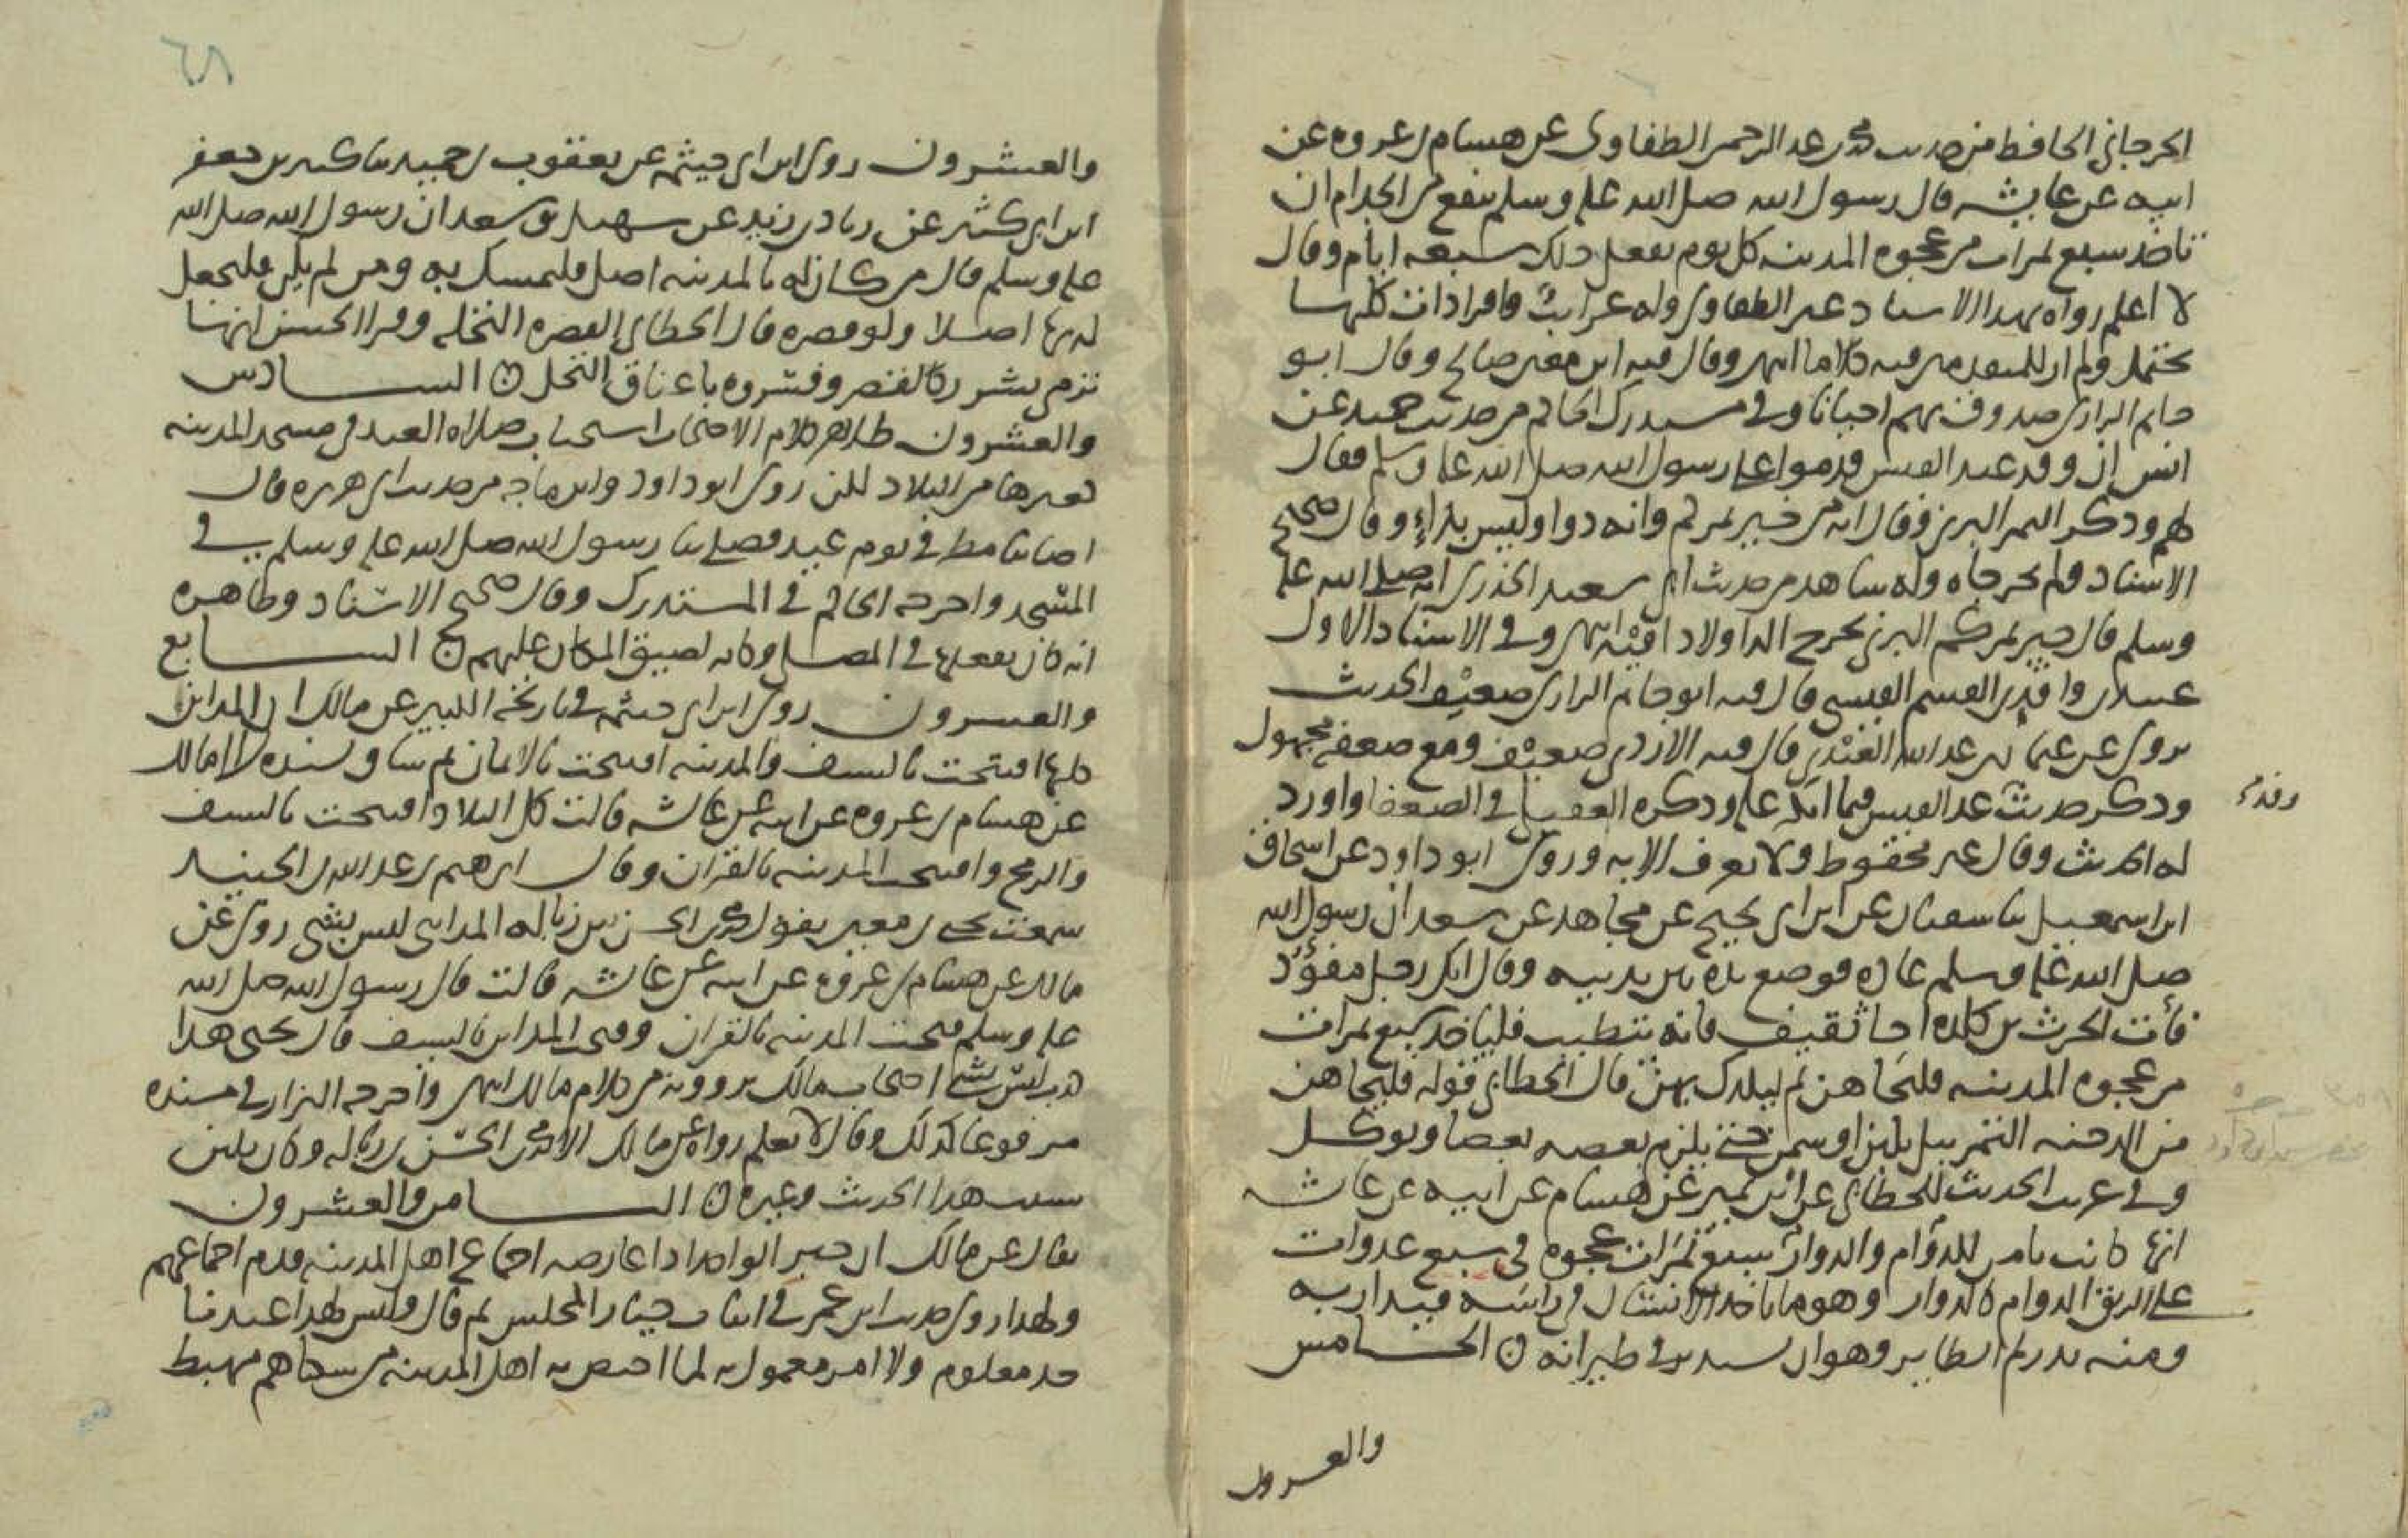 الجرجاني الحافظ من حديث محمد بن عبد الرحمن الطفاوى عن هشام بن عروه عن
ابيه عن عايشه قال رسول الله صلى الله عليه وسلم ينفع من الجذام ان
تاخذ سبع تمرات من عجوه المدينه كل يوم يفعل ذلك سبعه ايام وقال
لا اعلم رواه بهذا الاسناد غير الطفاوى وله غرايب وافرادات كلها
يحتمل ولم ار للمتقدمين فيه كلاما انتهى وقال فيه ابن معين صالح وقال ابو
حاتم الرازى صدوق يهم احيانا وفى مستدرك الحاكم من حديث حميد عن
انس ان وفد عبد القيس قدموا على رسول الله صلى الله عليه وسلم فقال
لهم وذكر التمر البرنى فقال انه من خير تمركم وانه دوا وليس بداء وقال صحيح
الاسناد ولم يخرجاه وله شاهد من حديث ابى سعيد الخدرى انه صلى الله عليه
وسلم قال خير تمركم البرنى يخرج الدا ولا دا فيه انتهى وفى الاسناد الاول
عبيد بن واقد بن القسم القيسى قال فيه ابو حاتم الرازى ضعيف الحديث
يروى عن عثمان بن عبد الله العبدى قال فيه الازدى ضعيف ومع ضعفه مجهول
وذكر حديث عبد القيس فيما انكر عليه وذكره العقيلى فى الضعفا واورد
له الحديث وقال غير محفوظ ولا يعرف الا به وروى ابو داود عن اسحاق
ابن اسمعيل ثنا سفيان عن ابن ابى نجيح عن مجاهد عن سعد ان رسول الله
صلى الله عليه وسلم عاده فوضع يده بين ثدييه وقال انك رجل مفؤد
فأت الحرث بن كلده اخا ثقيف فانه يتطبب فلياخذ سبع تمرات
من عجوه المدينه فليجاهن ثم ليلدك بهن قال الخطابى قوله فليجاهن
من الوجئه التمر يبل بلبن او سمن حتى يلزم بعضه بعضا ويوكل
وفى غريب الحديث للخطابى عن ابن نمير عن هشام عن ابيه عن عايشه
انها كانت تامر للدوام والدوار بسبع تمرات عجوه فى سبع غدوات
على الريق الدوام كالدوار وهو ما ياخذ الانسان فى راسه فيدار به
ومنه تدويم الطاير وهو ان يستدير فى طيرانه ن الخامس
والعشرون
والعشرون روى ابن ابى خيثمه عن يعقوب بن حميد ثنا كثير بن جعفر
ابن ابى كثير عن زياد بن زيد عن سهيل بن سعد ان رسول الله صلى الله
عليه وسلم قال من كان له بالمدينه اصل فليمسك به ومن لم يكن فليجعل
له بها اصلا ولو قصره قال الخطابى القصره النخله وقرا الحسن انها
ترمى بشرر كالقصر وفسروه باعناق النخل ن السادس
والعشرون ظاهر كلام الاصحاب استحباب صلاه العيد فى مسجد المدينه
كغيرها من البلاد لكن روى ابو داود وابن ماجه من حديث ابى هريره قال
اصابنا مطر فى يوم عيد فصلى بنا رسول الله صلى الله عليه وسلم فى
المسجد واخرجه الحاكم فى المستدرك وقال صحيح الاسناد وظاهره
انه كان يفعلها فى المصلى وكانه لضيق المكان عليهم ن السابع
والعشرون روى ابن ابى خيثمه فى تاريخه الكبير عن مالك ان المداين
كلها افتتحت بالسيف والمدينه افتتحت بالايمان ثم ساق بسنده الى مالك
عن هشام بن عروه عن ابيه عن عايشه قالت كل البلاد افتتحت بالسيف
والرمح وافتتحت المدينه بالقران وقال ابرهيم بن عبد الله بن الجنيد
سمعت يحيى بن معين يقول محمد بن الحسن بن زباله المدانى ليس بشى روى عن
مالك عن هشام بن عروه عن ابيه عن عايشه قالت قال رسول الله صلى الله
عليه وسلم فتحت المدينه بالقران وفتحت المداين بالسيف قال يحيى هذا
كذب ليس بشى اصحاب مالك يروونه من كلام مالك انتهى واخرجه البزار فى مسنده
مرفوعا كذلك وقال لا نعلم رواه عن مالك الا محمد بن الحسن بن زباله وكان يلين
بسبب هذا الحديث وغيره ن الثامن والعشرون
يقال عن مالك ان خبر الواحد اذا عارضه اجماع اهل المدينه قدم اجماعهم
ولهذا روى حديث ابن عمر فى اثبات خيار المجلس ثم قال وليس لهذا عندنا
حد معلوم ولا امر معمول به لما اختص به اهل المدينه من سكناهم مهبط